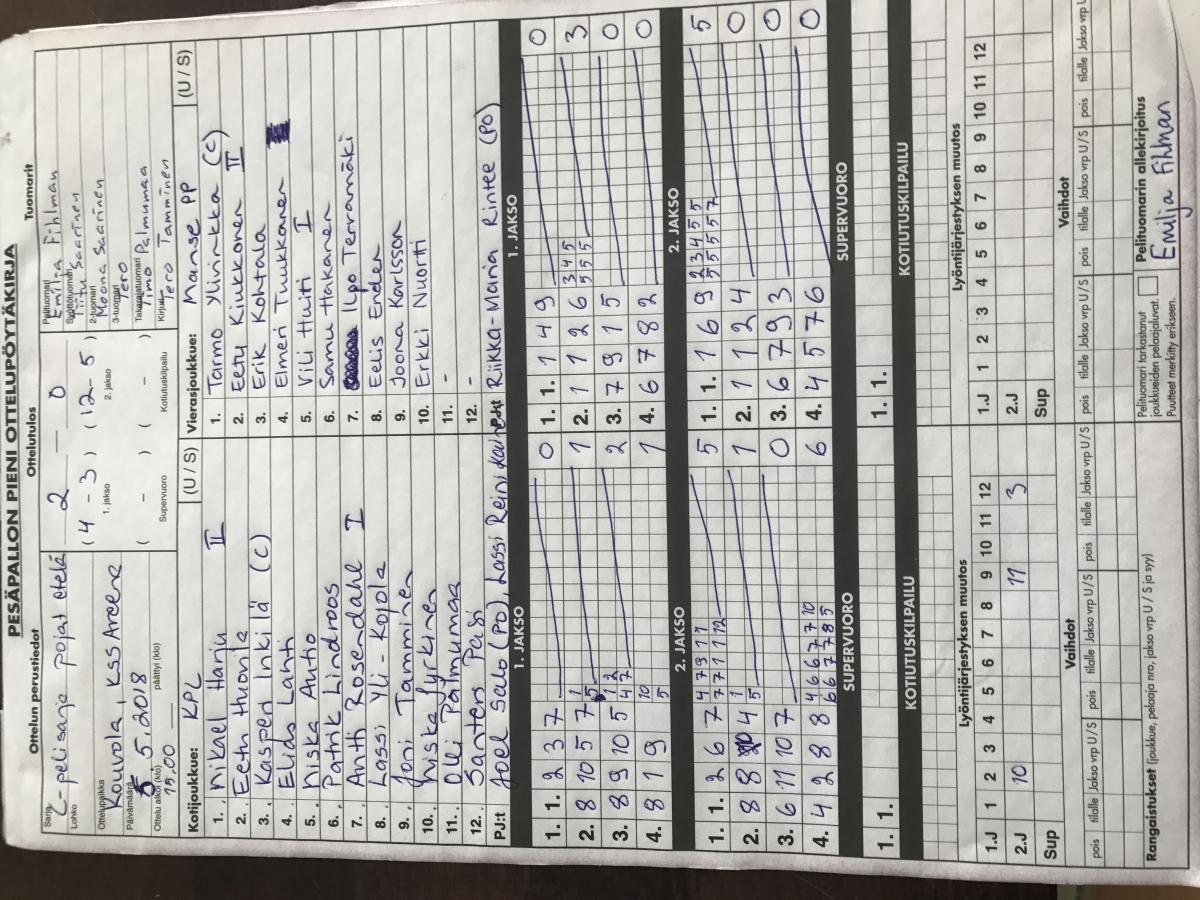 PESÄPALLON PIENI OTTELUPÖYTÄKIRJA
Ottelun perustiedot Ottelutulos Tuomarit
Sarja C-pelisarja pojat etelä
Lohko
Ottelupaikka Kouvola, KSS Areena
Päivämäärä 5.2018
Ottelu alkoi (klo) 15.00 päättyi (klo)
2 – 0
(4 - 3) (12 - 5)
1. jakso 2. jakso
( - ) ( - )
Supervuoro Kotiutuskilpailu
Pelituomari Emilia Fihlman
Syöttötuomari Tiitu Saarinen
2-tuomari Moona Saarinen
3-tuomari Tero
Takarajatuomari Timo Palmumaa
Kirjuri Tero Tamminen
Kotijoukkue: KPL (U / S) Vierasjoukkue: Manse PP (U / S)
1. Mikael Harju II 1. Tarmo Ylivinkka (C)
2. Eetu Huovila 2. Eetu Kiukkonen II
3. Kasperi Inkilä (C) 3. Erik Kohtala
4. Elias Lahti 4. Elmeri Tuukkanen
5. Niska Autio 5. Vili Huiti I
6. Patrik Lindroos 6. Samu Hakanen
7. Antti Rosendahl I 7. Ilpo Teramäki
8. Lassi Yli-Kojola 8. Eelis Enden
9. Joni Tamminen 9. Joona Karlsson
10. Miska Jyrkinen 10. Erkki Nuortti
11. Oli Palmumaa 11. -
12. Santeri Pasi 12. -
PJ:t Joel Salo (PO), Lassi Reinikainen PJ:t Riikka-Maria Rintee (PO)
1. JAKSO 1. JAKSO
1. 1. 2 3 7 0 1. 1. 1 4 9 0
2. 8 10 5 7 1 5 1 2. 1 1 2 6 3 4 5 5 5 5 3
3. 8 9 10 5 1 2 4 7 2 3. 7 9 1 5 0
4. 8 1 9 10 5 1 4. 6 7 8 2 0
2. JAKSO 2. JAKSO
1. 1. 2 6 7 4 7 9 11 7 7 11 12 5 1. 1. 1 6 9 2 3 4 5 5 5 5 5 5 7 5
2. 8 8 4 1 5 1 2. 1 1 2 4 0
3. 6 11 10 7 0 3. 6 7 9 3 0
4. 4 2 8 8 4 6 6 7 7 10 6 6 7 7 8 5 6 4. 4 5 7 6 0
SUPERVUORO SUPERVUORO
1. 1. 1. 1.
KOTIUTUSKILPAILU KOTIUTUSKILPAILU
Lyöntijärjestyksen muutos Lyöntijärjestyksen muutos
1.J 1 2 3 4 5 6 7 8 9 10 11 12 1.J 1 2 3 4 5 6 7 8 9 10 11 12
2.J 10 11 3 2.J
Sup Sup
Vaihdot Vaihdot
pois tilalle Jakso vrp U / S pois tilalle Jakso vrp U / S pois tilalle Jakso vrp U / S
pois tilalle Jakso vrp U / S pois tilalle Jakso vrp U / S pois tilalle Jakso vrp U
Rangaistukset (joukkue, pelaaja nro, jakso vrp U / S ja syy)
Pelituomari tarkastanut
joukkueiden pelaajaluvat.
Puutteet merkitty erikseen.
Pelituomarin allekirjoitus
Emilja Fihlman